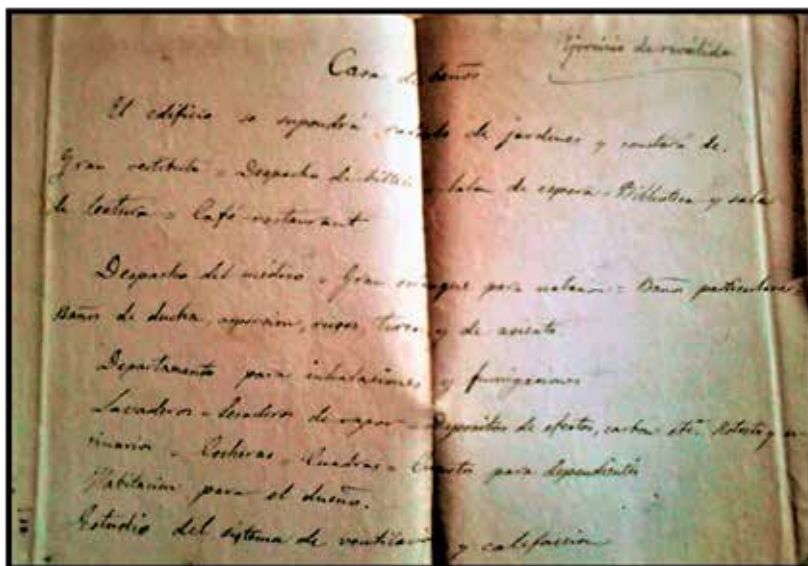 Ejercicio de reválida
Casa de baños
El edificio se supondrá rodeado de jardines y constará de.
Gran vestíbulo = Despacho de billetes = Salon de espera = Biblioteca y sala
de lectura = Café-restaurant
Despacho del médico = Gran estanque para natacion = Baños particulares =
Baños de ducha, aspersion, rusos, turcos y de asiento
Departamento para inhalaciones y fumigaciones
Lavaderos = Secaderos de vapor = Depósitos de efectos, carbon etc. Retretes y u-
rinarios = Cocheras = Cuadras = Cuartos para dependientes
Habitacion para el dueño.
Estudio del sistema de ventilacion y calefaccion